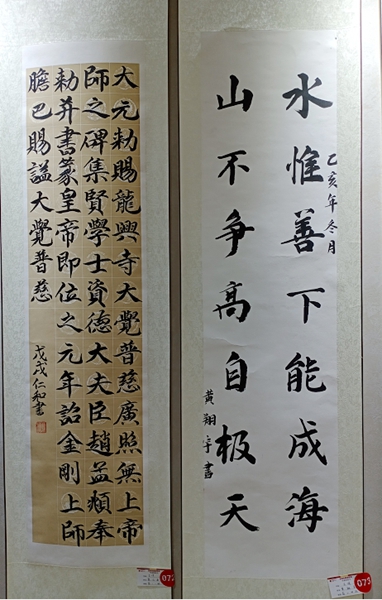 水惟善下能成海
乙亥年冬月
山不争高自极天
黄翔宇書
大元勅賜龍興寺大覺普慈廣照無上帝
師之碑集賢學士資德大夫臣趙孟頫奉
勅并書篆皇帝即位之元年詔金剛上師
膽巴賜謚大覺普慈
戊戌仁和書
073
072